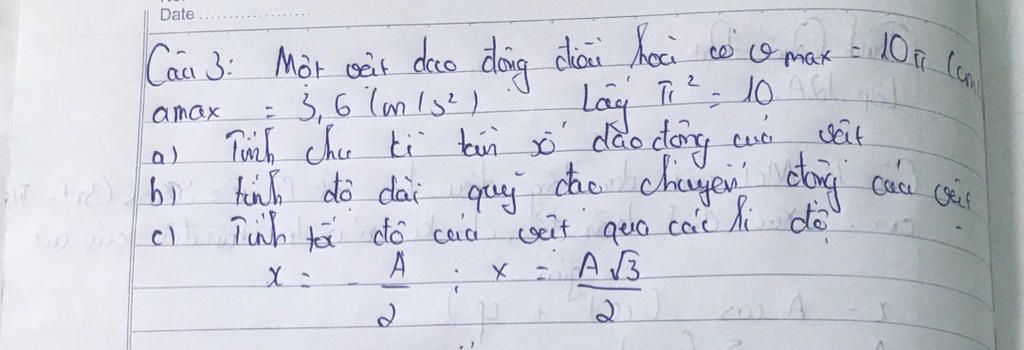 Date
Câu 3: Một vật dao động điều hoà có v max = 10π (cm
amax = 3,6 (m/s²) Lấy π² = 10
a) Tính chu kì tần số dao động của vật
b) tính độ dài quỹ đạo chuyển động của vật
c) Tính tốc độ của vật qua các li độ
x = - A/2 ; x = A√3/2